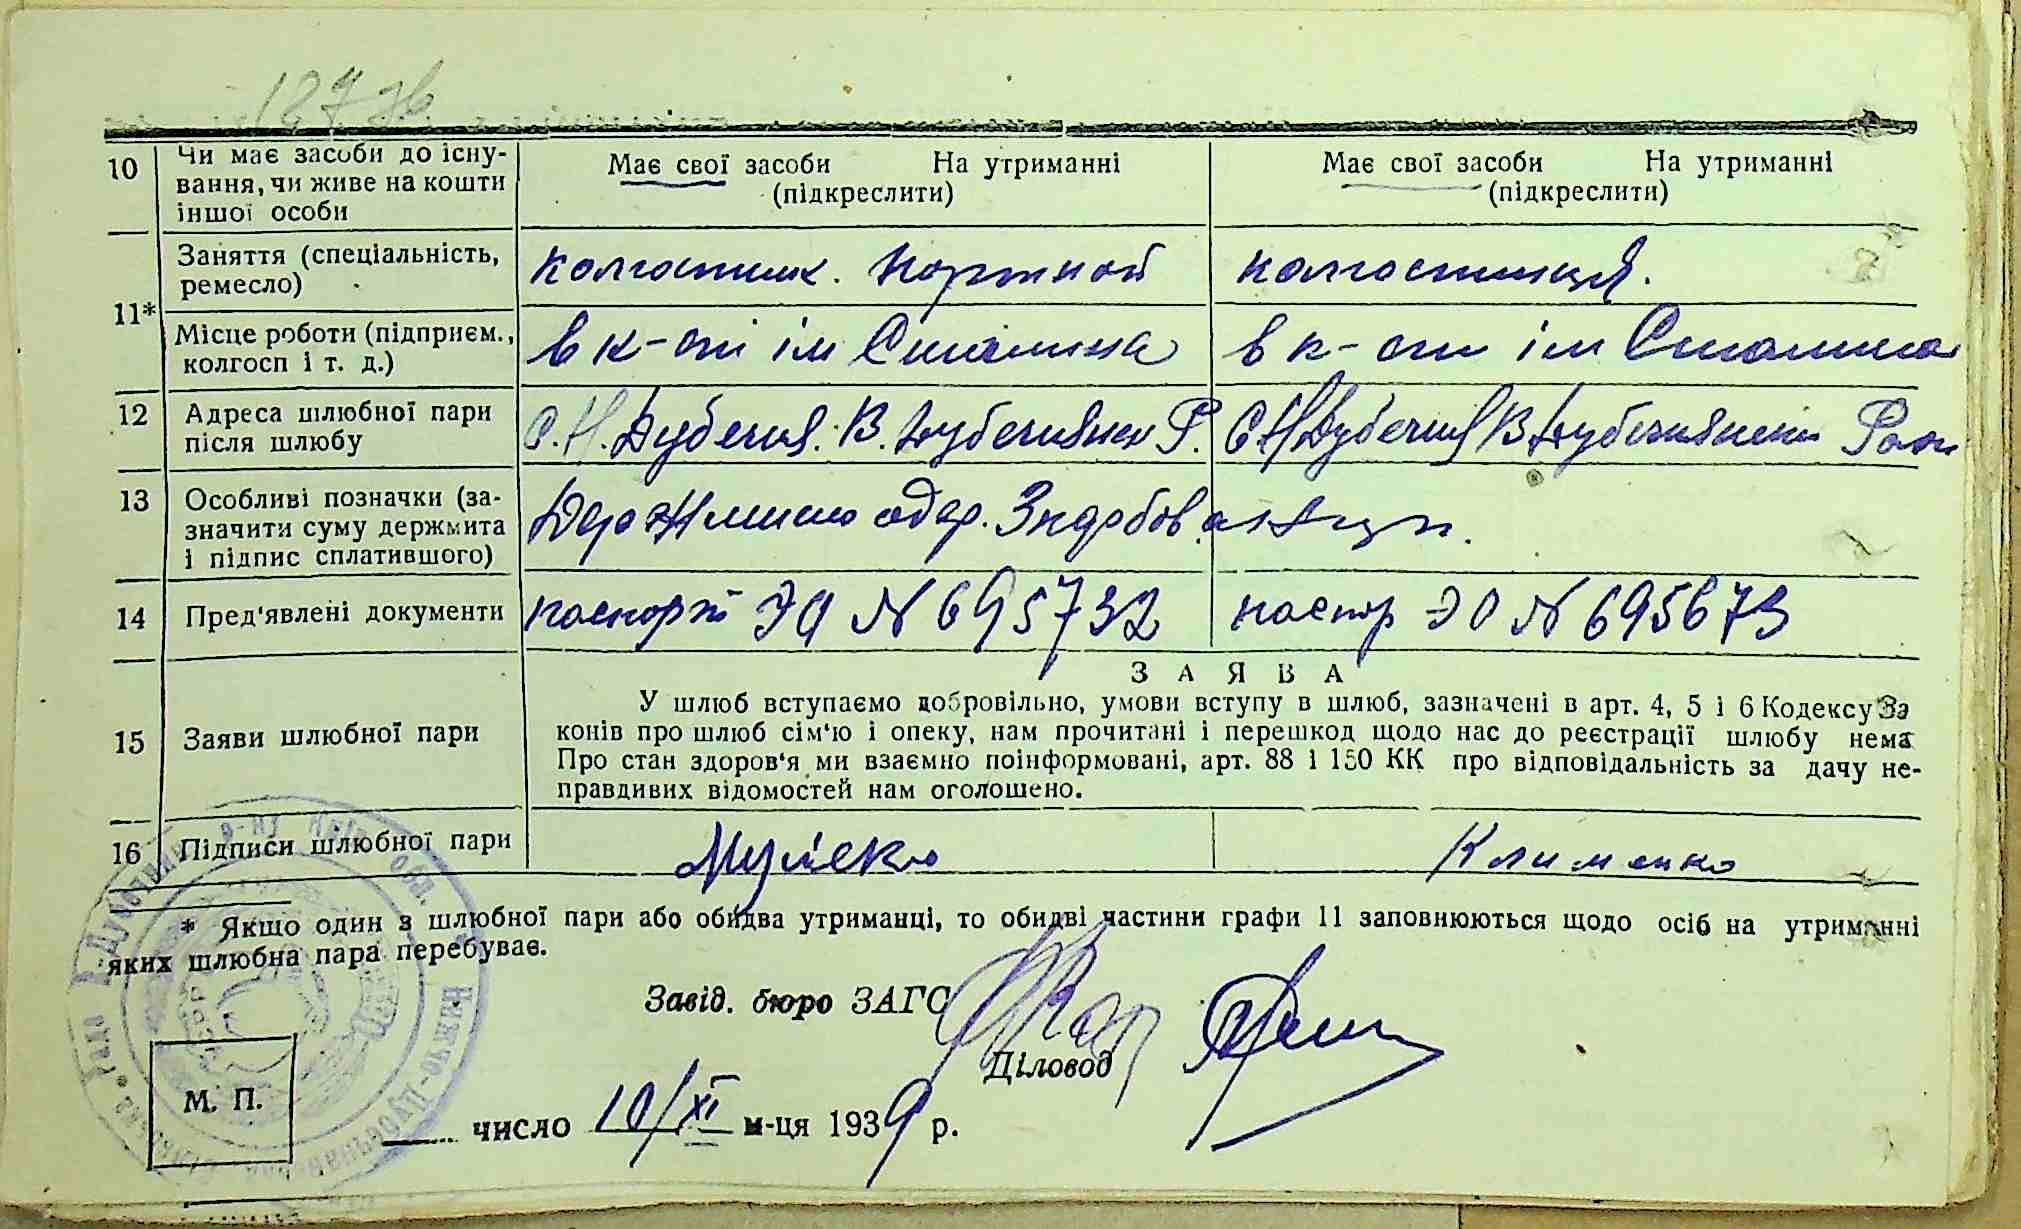 187 зв
10 Чи має засоби до існу-
вання, чи живе на кошти
іншої особи
Має свої засоби На утриманні
(підкреслити)
Має свої засоби На утриманні
(підкреслити)
11* Заняття (спеціальність,
ремесло)
колгосник. портной
колгостниця.
Місце роботи (підприєм.,
колгосп і т. д.)
в к-сті ім Сталина
в к-сти ім Сталина
12 Адреса шлюбної пари
після шлюбу
С. Н. Дубечня. В. Дубечнянск Р.
С Н Дубечня В Дубечнянски Рон
13 Особливі позначки (за-
значити суму держмита
і підпис сплатившого)
14 Пред'явлені документи
паспорт ЭО N 695732
паспор ЭО N 695673
15 Заяви шлюбної пари
ЗАЯВА
У шлюб вступаємо добровільно, умови вступу в шлюб, зазначені в арт. 4, 5 і 6 Кодексу За
конів про шлюб сім'ю і опеку, нам прочитані і перешкод щодо нас до реєстрації шлюбу нема
Про стан здоров'я ми взаємно поінформовані, арт. 88 і 150 КК про відповідальність за дачу не-
правдивих відомостей нам оголошено.
16 Підписи шлюбної пари
Клименко
* Якщо один з шлюбної пари або обидва утриманці, то обидві частини графи 11 заповнюються щодо осіб на утриманні
яких шлюбна пара перебуває.
Завід. бюро ЗАГС
Діловод
М. П.
число 10/XI м-ця 1939 р.